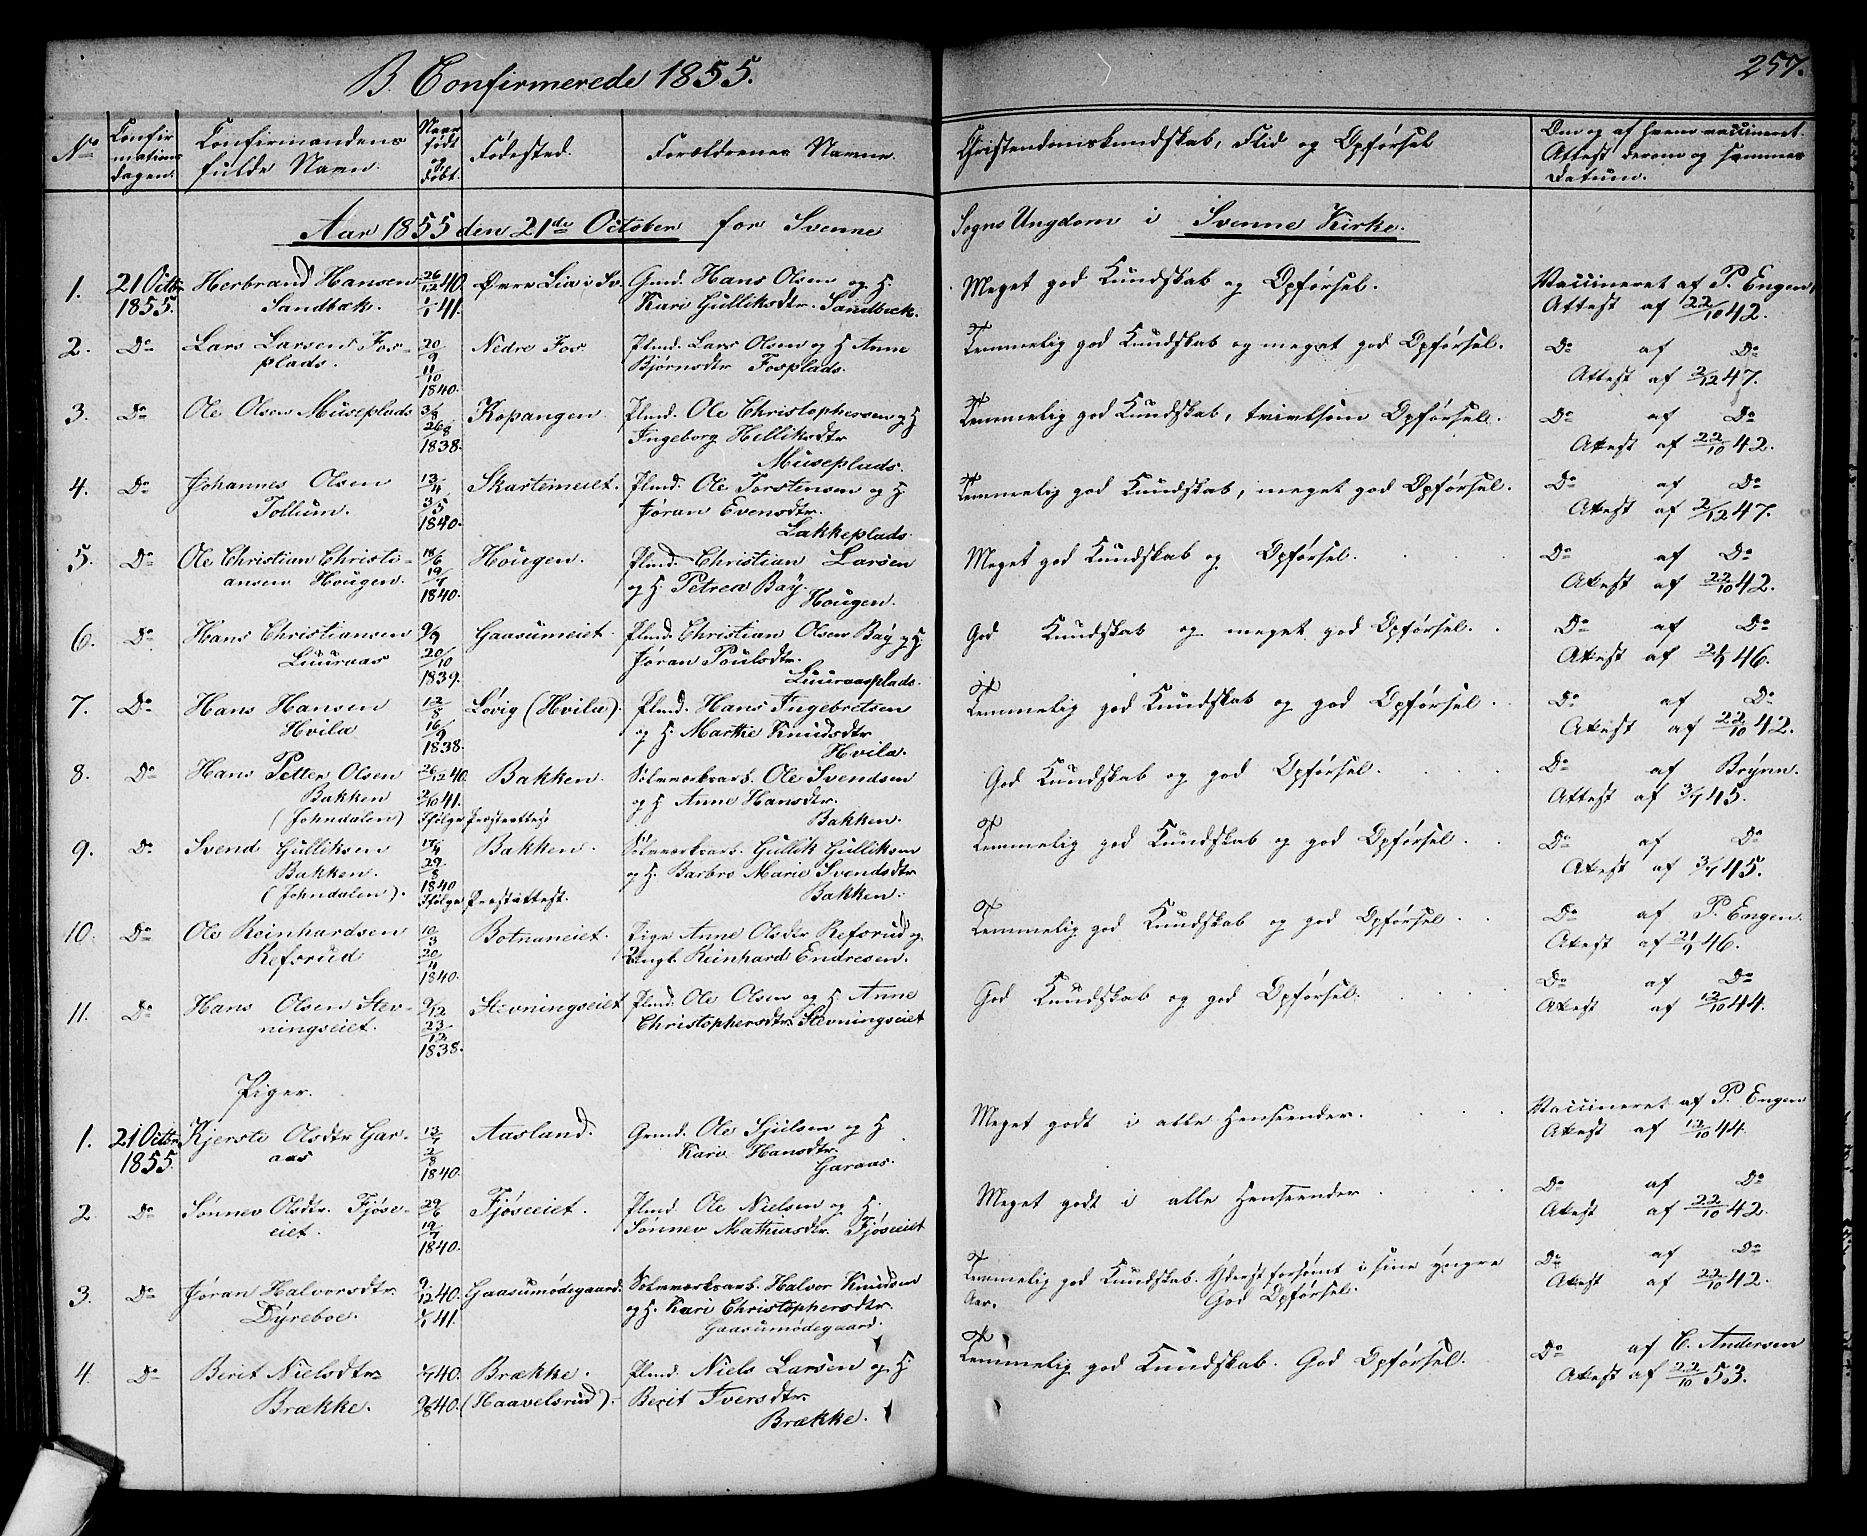 B. Confirmerede 1855.
257.
No
Confirmations dagen.
Confirmandens fulde Navn.
Naar født og døbt.
Fødested.
Forældrenes Navne.
Christendomskundskab, Flid og Opførsel
Om og af hvem vaccineret. Attest derom og sammes Datum.
Aar 1855 den 21de October for Svenne Sogns Ungdom i Svenne Kirke.
1. 21 Octbr 1855. Herbrand Hansen Sandbæk. 26/12 40. 1/1 41. Øvre Lia i Sv. Gmd. Hans Olsen og H. Kari Gulliksdtr. Sandbæk. Meget god Kundskab og Opførsel. Vaccineret af P. Engen, Attest af 22/10 42.
2. Do Lars Larsen Fosplads. 20/9 11/10 1840. Nedre Fos. Plmd. Lars Olsen og H Anne Bjørnsdtr Fosplads. Temmelig god Kundskab og meget god Opførsel. Do af Do Attest af 2/12 47.
3. Do Ole Olsen Museplads 3/8 26/8 1838. Kopangen. Plmd. Ole Christophersen og H Ingeborg Helliksdtr Museplads. Temmelig god Kundskab, tvivlsom Opførsel. Do af Do Attest af 22/10 42.
4. Do Johannes Olsen Tollum. 13/4 3/5 1840. Skarteineiet. Plmd. Ole Torstensen og H. Jøran Evensdtr. Lakkeplads. Temmelig god Kundskab, meget god Opførsel. Do af Do Attest af 2/12 47.
5. Do Ole Christian Christiansen Hougen. 18/6 19/7 1840. Hougen. Plmd. Christian Larsen og H. Petrea Bay. Hougen. Meget god Kundskab og Opførsel. Do af Do Attest af 22/10 42.
6. Do Hans Christiansen Luuraas 9/9 20/10 1839. Gaasumeiet. Plmd. Christian Olsen Bay og H Jøran Poulsdtr. Luuraasplads. God Kundskab og meget god Opførsel. Do af Do Attest af 46.
7. Do Hans Hansen Hvila 12/8 16/9 1838. Lovig (Hvila). Plmd. Hans Ingebretsen og H. Marthe Knudsdtr Hvila. Temmelig god Kundskab og god Opførsel. Do af Do Attest af 22/10 42.
8. Do Hans Petter Olsen Bakken (Johndalen) 26/12 40. 2/10 41. Ifølge Præsteattest Bakken. Sølvværksarb. Ole Svendsen og H Anne Hansdtr. Bakken. God Kundskab og god Opførsel. Do af Brynn. Attest af 3/7 45.
9. Do Svend Gulliksen Bakken. (Johndalen). 29/8 1840 Ifølge Præstattest. Bakken. Sølvværksarb. Gullik Gulliksen og H. Barbro Marie Svendsdtr Bakken. Temmelig god Kundskab og god Opførsel. Do af Do Attest af 3/7 45.
10. Do Ole Reinhardsen Refsrud 10/3 20/4 1840. Botnaneiet. Pige Anne Olsdtr Refsrud og Ungk. Reinhard Endresen. Temmelig god Kundskab og god Opførsel. Do af P. Engen. Attest af 46.
11. Do Hans Olsen Stevningseiet. 9/12 23/12 1838. Stevningseiet Plmd. Ole Olsen og H Anne Christophersdtr. Stevningseiet God Kundskab og god Opførsel. Do af Do Attest af 12/10 44.
Piger.
1. 21 Octbr 1855. Kjersti Olsdtr Garaas 13/7 2/8 1840. Aasland. Gmd. Ole Sjulsen og H Kari Hansdtr. Garaas. Meget godt i alle Henseender. Vaccineret af P. Engen Attest af 12/10 44.
2. Do Sønnev Olsdtr. Fjøseiet. 29/6 19/7 1840. Fjøseiet. Plmd Ole Nielsen og H. Sønnev Mathiasdtr. Fjøseiet Meget godt i alle Henseender. Do af Do Attest af 22/10 42.
3. Do Jøran Halvorsdtr. Dyreboe. 9/12 40. 1/1 41. Gaasumødegaard. Sølvværksarb. Halvor Knudsen og H. Kari Christophersdtr. Gaasumødegaard. Temmelig god Kundskab. Yderst forsømt i sine yngre Aar. God Opførsel. Do af Do Attest af 22/10 42.
4. Do Berit Nielsdtr. Brække. 40. 9/8 40. Brække. (Haavelsrud). Plmd. Niels Larsen og H Berit Iversdtr. Brække. Temmelig god Kundskab. God Opførsel. Do af C. Andersen Attest af 22/10 53.